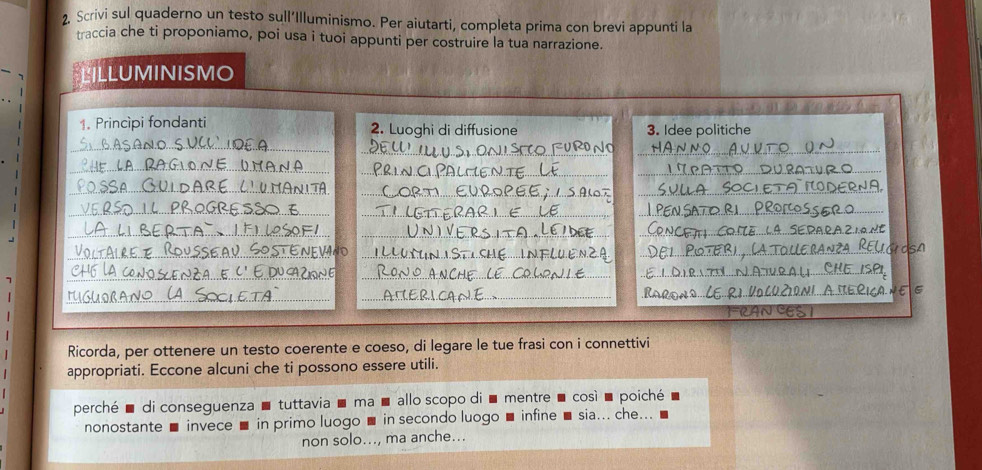 2. Scrivi sul quaderno un testo sull'Illuminismo. Per aiutarti, completa prima con brevi appunti la
traccia che ti proponiamo, poi usa i tuoi appunti per costruire la tua narrazione.
L'ILLUMINISMO
1. Princìpi fondanti
SI BASANO SULL' IDEA
CHE LA RAGIONE UMANA
POSSA GUIDARE L'UMANITA
VERSO IL PROGRESSO E
LA LIBERTA'. I FILOSOFI
VOLTAIRE E ROUSSEAU SOSTENEVANO
CHE LA CONOSCENZA E L'EDUCAZIONE
MIGLIORANO LA SOCIETA'
2. Luoghi di diffusione
DELL' ILLUSIONISMO FURONO
PRINCIPALMENTE LE
CORTI EUROPEE, I SALOT
TI LETTERARI E LE
UNIVERSITA. LE IDEE
ILLUMINISTICHE INFLUENZA
RONO ANCHE LE COLONIE
AMERICANE.
3. Idee politiche
HANNO AVUTO UN
IMPATTO DURATURO
SULLA SOCIETA' MODERNA.
I PENSATORI PROMOSSERO
CONCETTI COME LA SEPARAZIONE
DEI POTERI, LA TOLLERANZA RELIGIOSA
E I DIRITTI NATURALI CHE ISPI
RARONO LE RIVOLUZIONI AMERICANE E
FRANCESI
Ricorda, per ottenere un testo coerente e coeso, di legare le tue frasi con i connettivi
appropriati. Eccone alcuni che ti possono essere utili.
perché ■ di conseguenza ■ tuttavia ■ ma ■ allo scopo di ■ mentre ■ così ■ poiché ■
nonostante ■ invece ■ in primo luogo ■ in secondo luogo ■ infine ■ sia... che... ■
non solo..., ma anche...